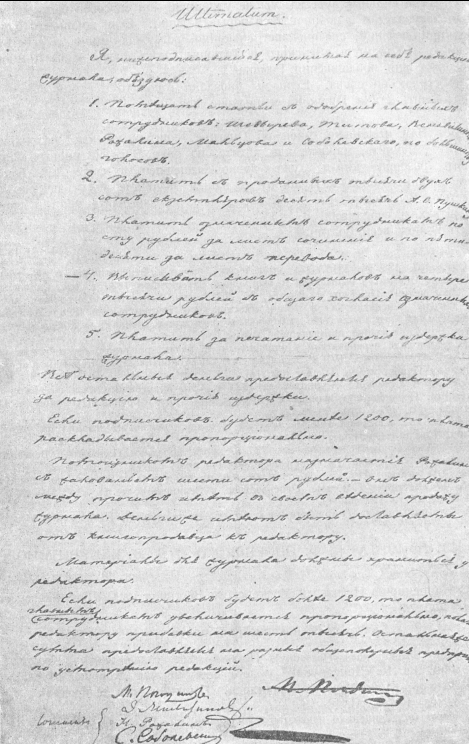 Ultimatum.
Я, нижеподписавшійся, принимая на себя редакцію
журнала, обязуюсь:
1. Помѣщать статьи съ одобренія главныхъ
сотрудниковъ: Шевырева, Титова, Веневитинова,
Рожалина, Мальцова и Соболевскаго, по большинству
голосовъ.
2. Платить съ проданныхъ тысячи двухъ
сотъ экземпляровъ десять тысячъ А. С. Пушкину.
3. Платить означеннымъ сотрудникамъ по
сту рублей за листъ сочиненія и по пяти-
десяти за листъ перевода.
4. Выписывать книгъ и журналовъ на четыре
тысячи рублей съ общаго согласія означенныхъ
сотрудниковъ.
5. Платить за печатаніе и прочія издержки
журнала.
Всѣ остальныя деньги предоставляются редактору
за редакцію и прочія издержки.
Если подписчиковъ будетъ менѣе 1200, то плата
раскладывается пропорціонально.
Помощникомъ редактора назначается Рожалинъ
съ жалованьемъ шести сотъ рублей. — Онъ долженъ
между прочимъ имѣть въ своемъ вѣденіи продажу
журнала. Деньги же имѣютъ быть доставляемы
отъ книгопродавца къ редактору.
Матеріалы для журнала должны храниться у
редактора.
Если подписчиковъ будетъ болѣе 1200, то плата
главнымъ
сотрудникамъ увеличивается пропорціонально,
редактору прибавки на шесть тысячъ. Остальная за
сумма предоставляется на разныя общеполезныя предпр
по усмотрѣнію редакцій.
М. Погодинъ
Д. Веневитиновъ
Н. Рожалинъ
С. Соболевскій